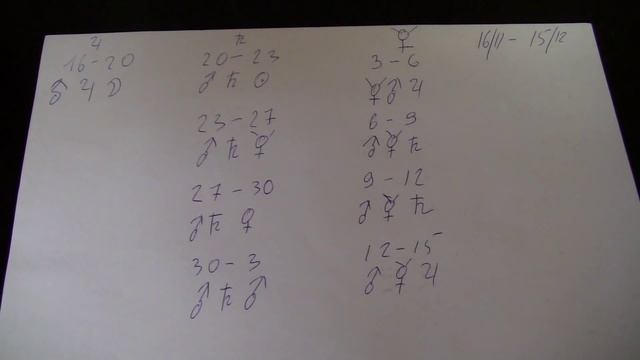 ♃
16-20
♂ ♃ ☽
♄
20-23
♂ ♄ ☉
23-27
♂ ♄ ☿
27-30
♂ ♄ ♀
30-3
♂ ♄ ♂
☿
3-6
☿ ♂ ♃
6-9
♂ ☿ ♄
9-12
♂ ☿ ♄
12-15
♂ ☿ ♃
16/11 - 15/12